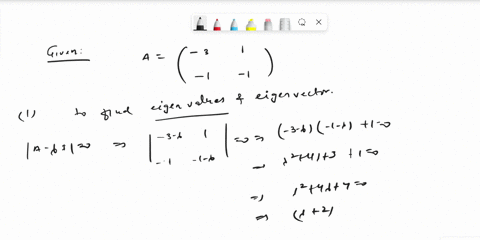 Given: A = ( -3 1
-1 -1 )
(1) to find eigen values & eigen vector.
|A-λI|=0 ⇒ | -3-λ 1
-1 -1-λ | =0 ⇒ (-3-λ)(-1-λ)+1=0
⇒ λ²+4λ+3+1=0
⇒ λ²+4λ+4=0
⇒ (λ+2)